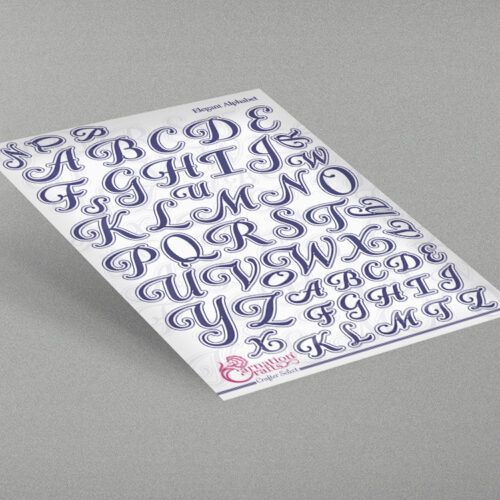 Elegant Alphabet
N P B
A B C D E
F S G H I J Z
K L U M N W O
P Q R S T B
U V O W X
Y Z A B C D E
F G H I J
X K L M T Z
Carnation
Crafts
Crafter Select